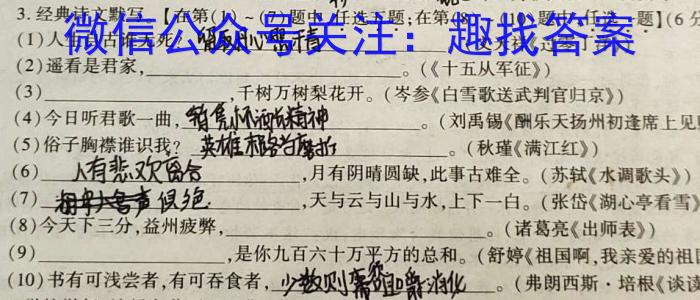 3. 经典诗文默写。【在第(1)~(7)题中,任选五题;在第(8)~(10)题中,任选一题】(6分
微信公众号关注：趣找答案
(1)人生自古谁无死?留取丹心照汗青
(2)遥看是君家,________。(《十五从军征》)
(3)________,千树万树梨花开。(岑参《白雪歌送武判官归京》)
(4)今日听君歌一曲,销凭杯酒长精神。(刘禹锡《酬乐天扬州初逢席上见
(5)俗子胸襟谁识我?英雄末路当磨折。(秋瑾《满江红》)
(6)人有悲欢离合,月有阴晴圆缺,此事古难全。(苏轼《水调歌头》)
(7)俱绝,天与云与山与水,上下一白。(张岱《湖心亭看雪》
(8)今天下三分,益州疲弊,________。(诸葛亮《出师表》)
(9)________,是你九百六十万平方的总和。(舒婷《祖国啊,我亲爱的祖国
(10)书有可浅尝者,有可吞食者,少数则需咀嚼消化。(弗朗西斯·培根《谈读